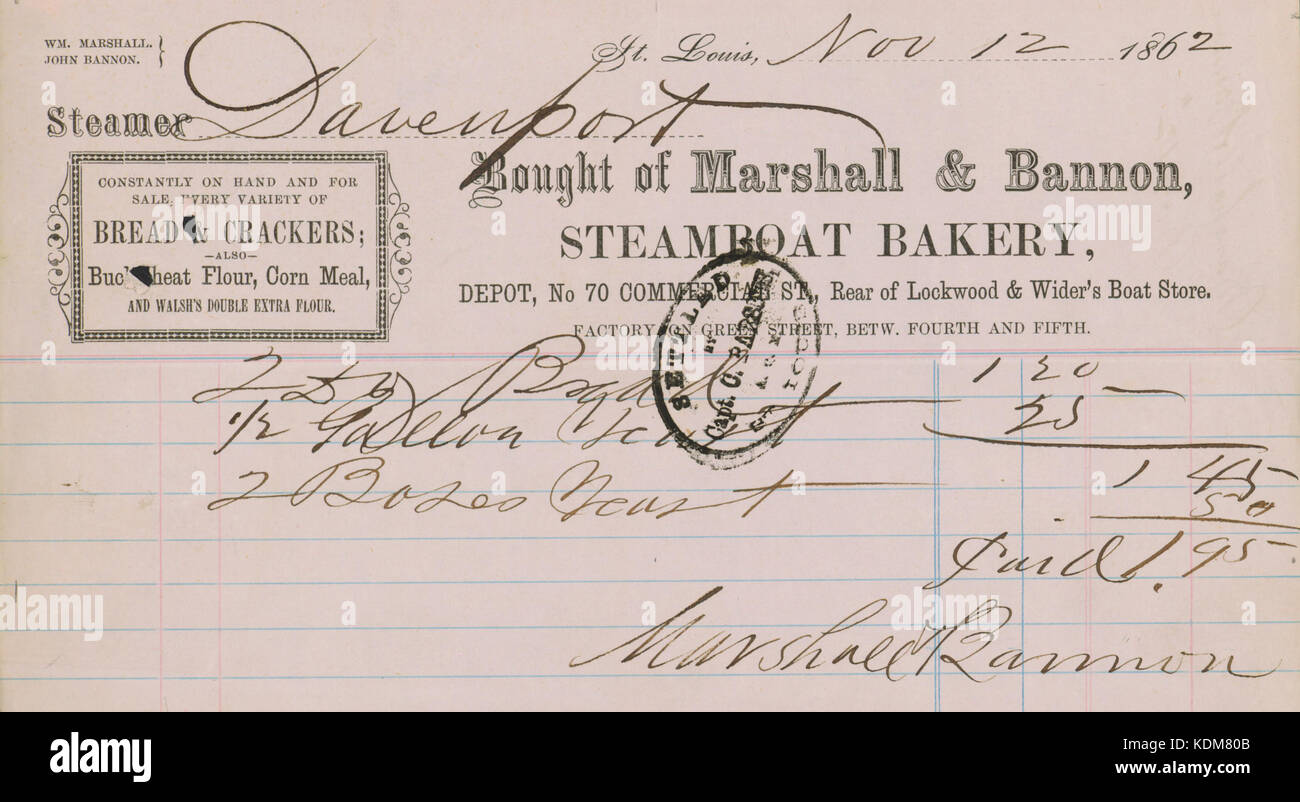 WM. MARSHALL.
JOHN BANNON.
St. Louis, Nov 12 1862
Steamer Davenport
CONSTANTLY ON HAND AND FOR
SALE, EVERY VARIETY OF
BREAD & CRACKERS;
—ALSO—
Buckwheat Flour, Corn Meal,
AND WALSH'S DOUBLE EXTRA FLOUR.
Bought of Marshall & Bannon,
STEAMBOAT BAKERY,
DEPOT, No 70 COMMERCIAL ST., Rear of Lockwood & Wider's Boat Store.
FACTORY ON GREEN STREET, BETW. FOURTH AND FIFTH.
SETTLED
BY
Capt. C.
2 Bread 1 20
1/2 Gallon Yeast 25
1 45
2 Boxes Yeast 50
Paid 1.95
Marshall & Bannon
alamy
Image ID: KDM80B
www.alamy.com